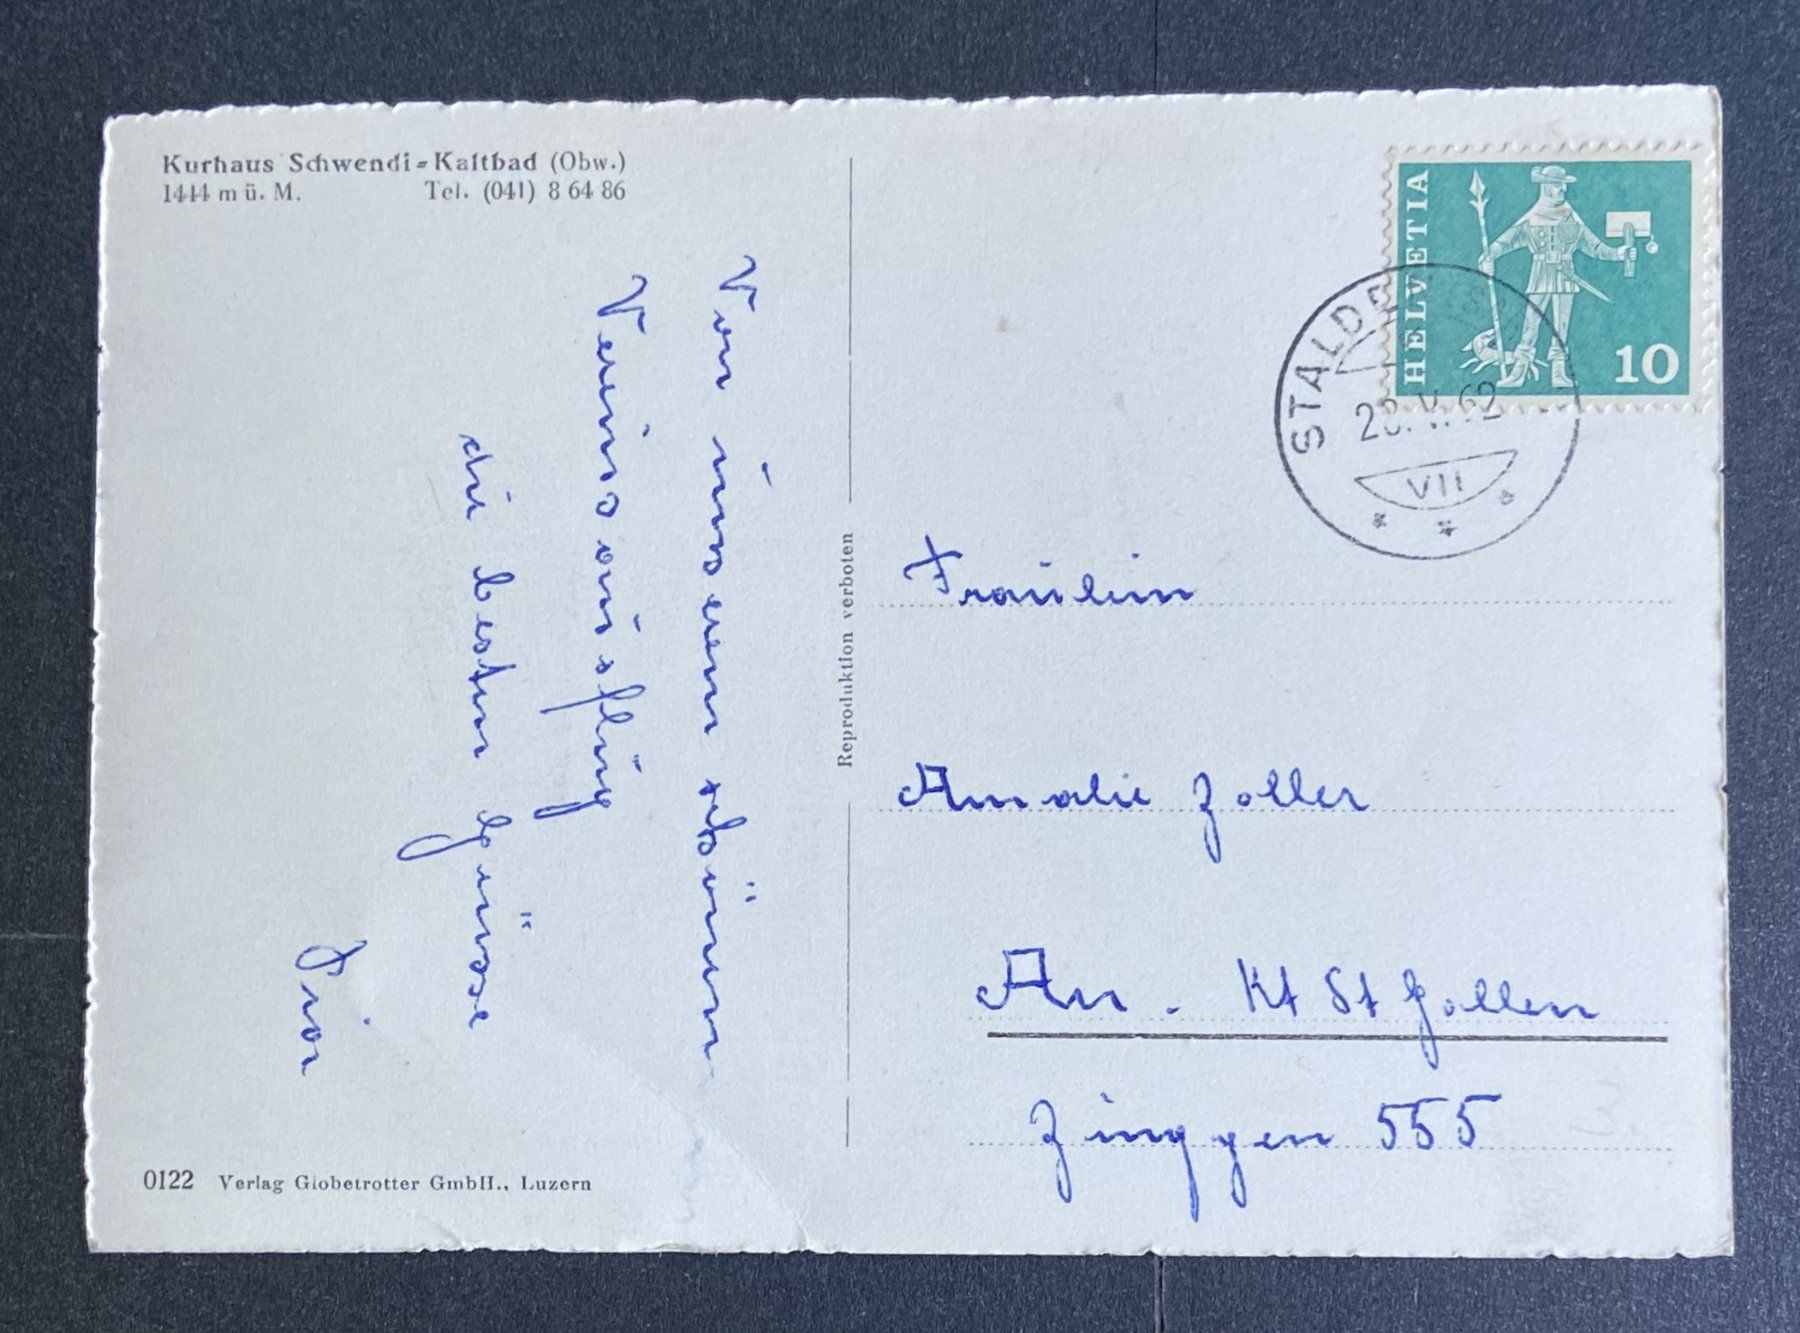 Kurhaus Schwendi-Kaltbad (Obw.)
1444 m ü. M. Tel. (041) 8 64 86
Von unserem schönen
Vereinsausflug
die besten Grüsse
Reproduktion verboten
0122 Verlag Globetrotter GmbH., Luzern
HELVETIA
10
STALDEN
28.V.62
VII
Fräulein
Amalie Zoller
Au. Kt St Gallen
Zinggen 555